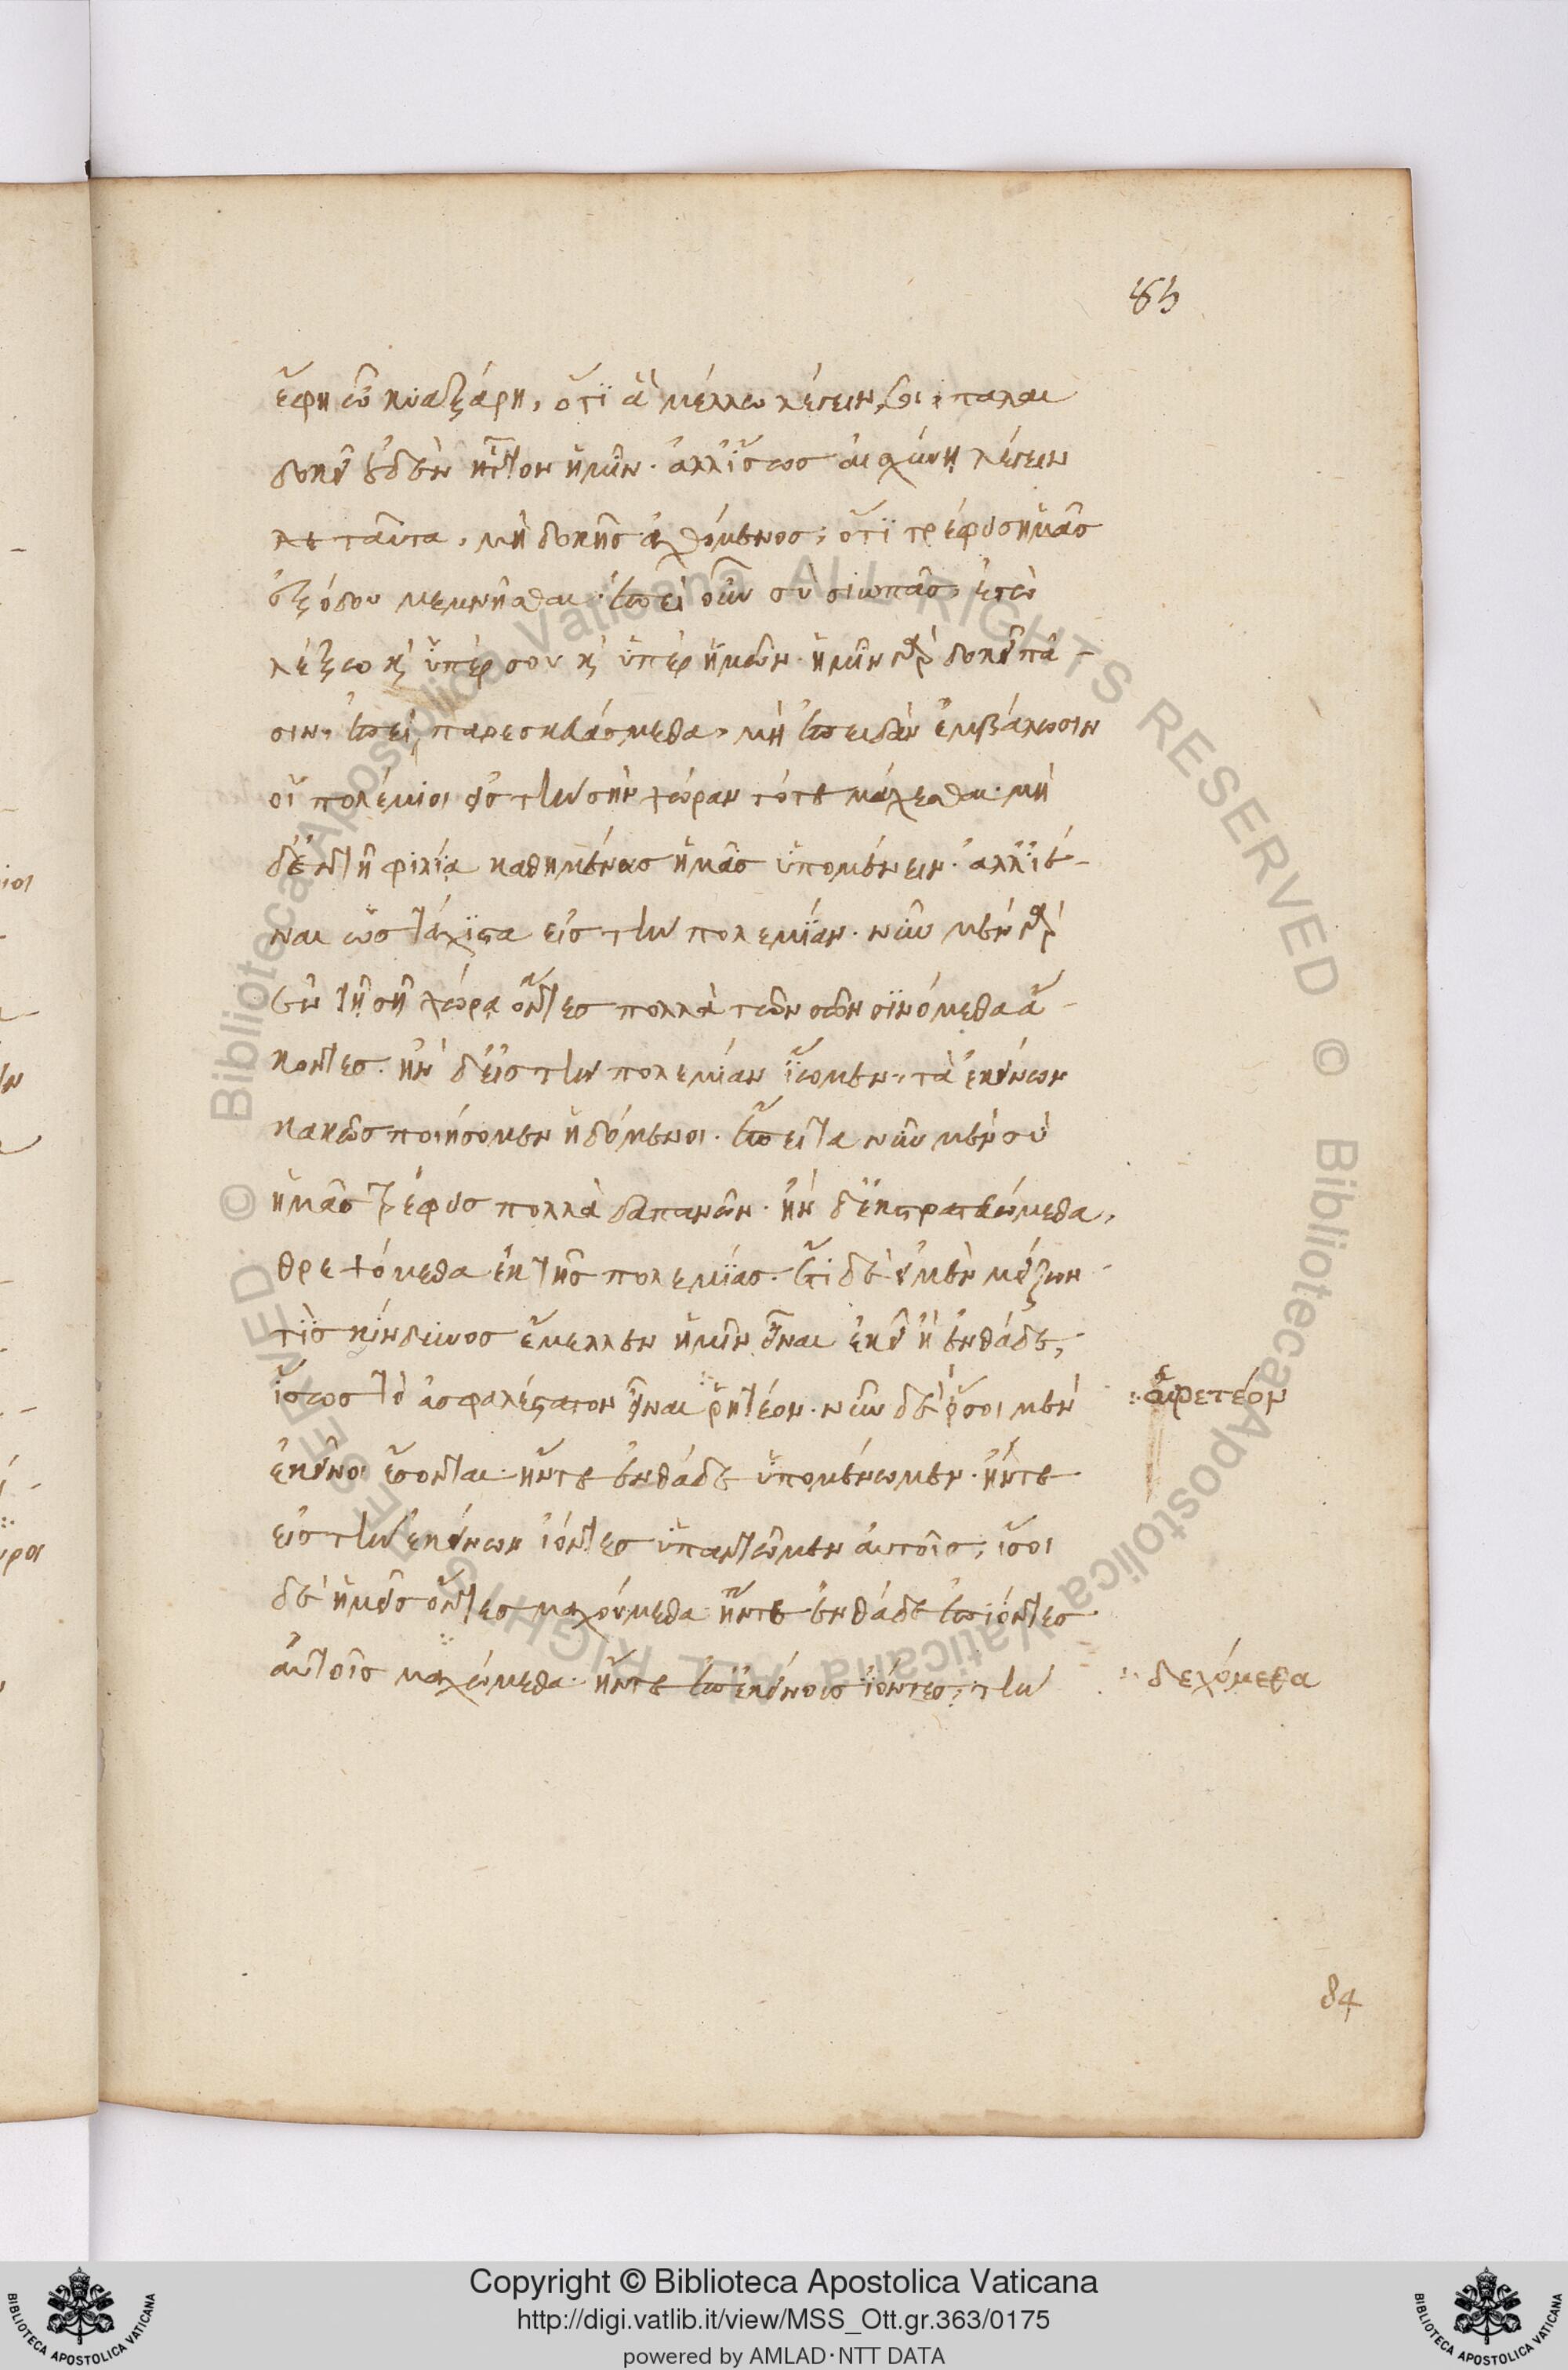 83
ἔφη ὦ κυαξάρη, ὅτι ἃ μέλλω λέγειν σοι πάλαι
δοκεῖ οὐδὲν ἧττον ἡμῖν. ἀλλ' ἴσως αἰσχύνη λέγειν
ταῦτα, μὴ δοκῇς ἀχθόμενος, ὅτι τρέφεις ἡμᾶς
ἐξόδου μεμνῆσθαι. ἐπεὶ οὖν σὺ σιωπᾷς, ἐγὼ
λέξω κ̀ ὑπὲρ σοῦ κ̀ ὑπὲρ ἡμῶν. ἡμῖν γὰρ δοκεῖ πᾶ-
σιν, ἐπεὶ παρεσκευάσμεθα, μὴ ἐπειδὰν ἐμβάλωσιν
οἱ πολέμιοι εἰς τὴν σὴν χώραν τότε μάχεσθαι. μὴ
δ' ἐν τῇ φιλίᾳ καθημένους ἡμᾶς ὑπομένειν. ἀλλ' ἰέ-
ναι ὡς τάχιστα εἰς τὴν πολεμίαν. νῦν μὲν γὰρ
ἐν τῇ σῇ χώρᾳ ὄντες πολλὰ τῶν σῶν σινόμεθα ἄ-
κοντες. ἢν δ' εἰς τὴν πολεμίαν ἴωμεν, τὰ ἐκείνων
κακῶς ποιήσομεν ἡδόμενοι. ἔπειτα νῦν μὲν σὺ
ἡμᾶς τρέφεις πολλὰ δαπανῶν. ἢν δ' ἐκστρατευώμεθα,
θρεψόμεθα ἐκ τῆς πολεμίας. ἔτι δὲ εἰ μὲν μείζων
τις κίνδυνος ἔμελλεν ἡμῖν εἶναι ἐκεῖ ἢ ἐνθάδε,
ἴσως τὸ ἀσφαλέστατον εἶναι ῥητέον. νῦν δὲ ἴσοι μὲν
∴ αἱρετέον
ἐκεῖνοι ἔσονται ἤντε ἐνθάδε ὑπομένωμεν. ἤντε
εἰς τὴν ἐκείνων ἰόντες ὑπαντῶμεν αὐτοῖς, ἴσοι
δὲ ἡμεῖς ὄντες μαχούμεθα ἤντε ἐνθάδε ἐπιόντες
αὐτοῖς μαχώμεθα. ἤντε ἐπ' ἐκείνους ἰόντες, τὴν
∴ δεχόμεθα
84
Copyright © Biblioteca Apostolica Vaticana
http://digi.vatlib.it/view/MSS_Ott.gr.363/0175
powered by AMLAD·NTT DATA